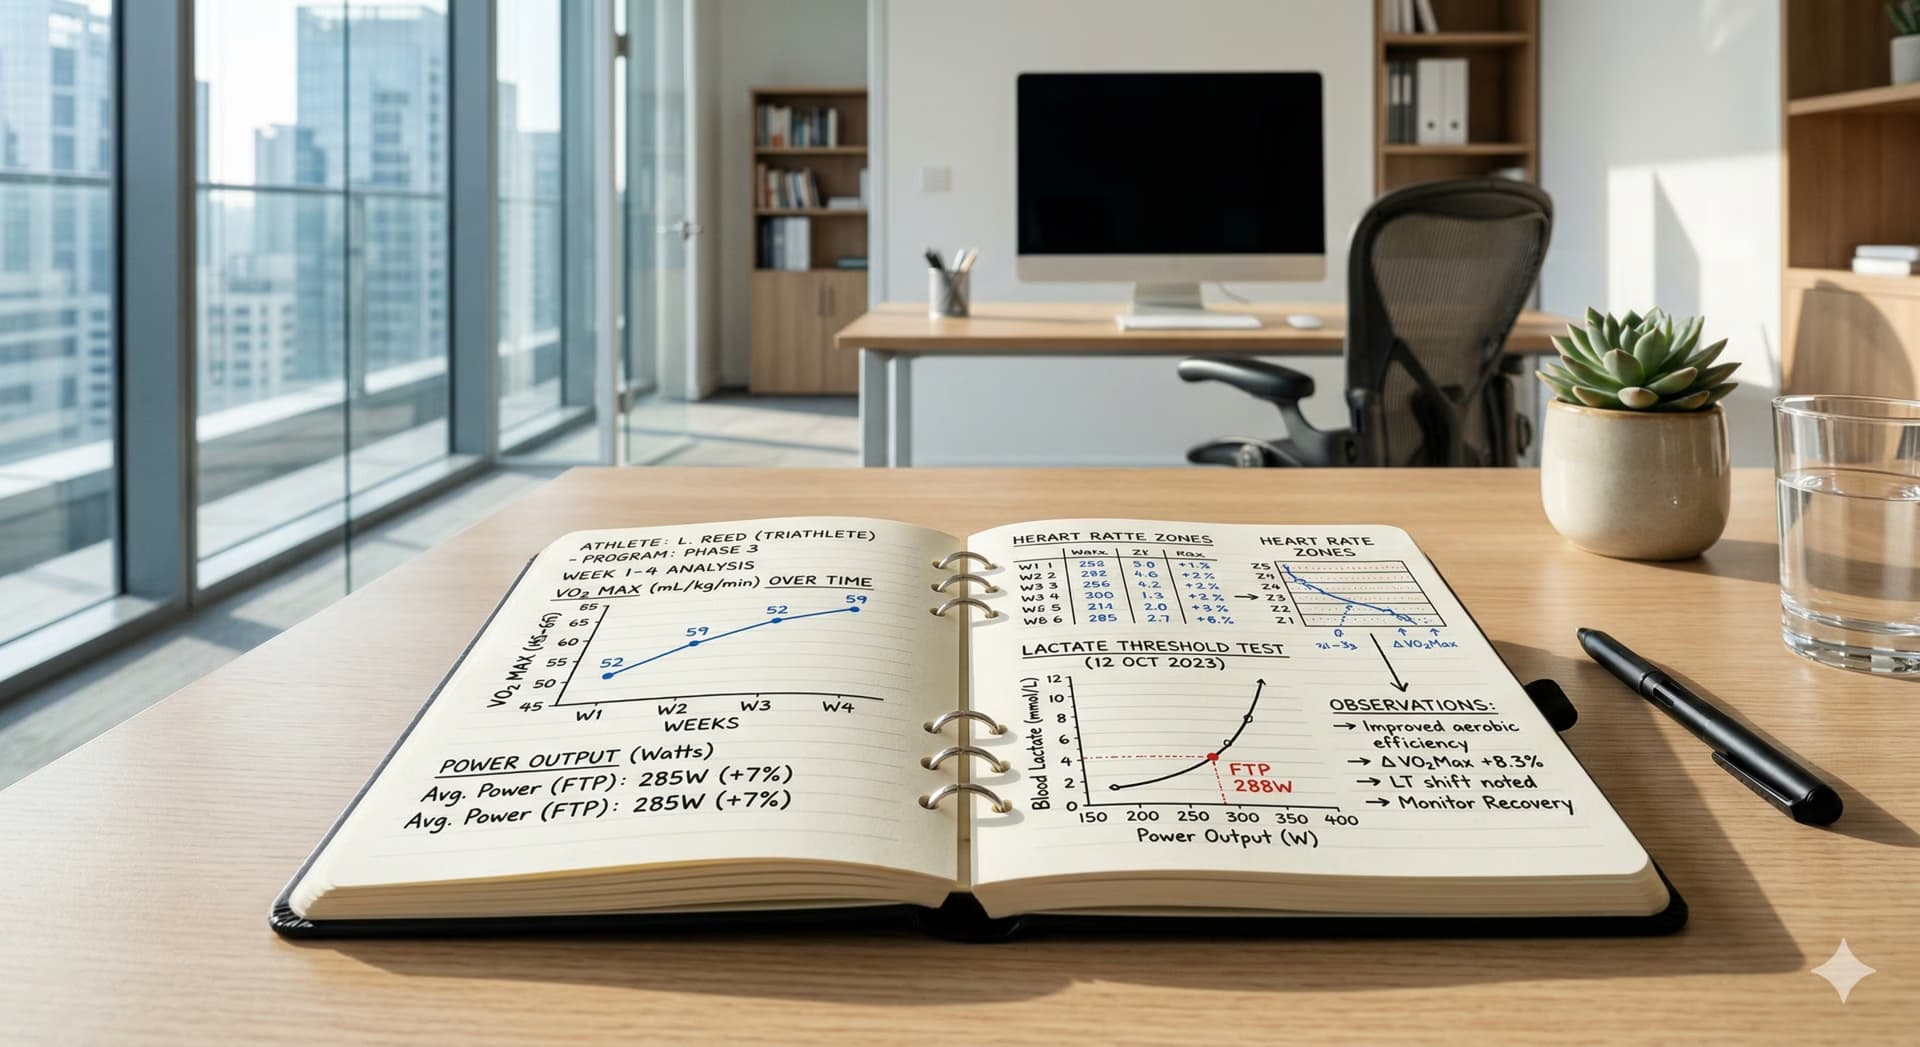 ATHLETE: L. REED (TRIATHLETE)
- PROGRAM: PHASE 3
WEEK 1-4 ANALYSIS
VO₂ MAX (mL/kg/min) OVER TIME
65
65
60
55
50
45
52
59
52
59
W1 W2 W3 W4
WEEKS
POWER OUTPUT (Watts)
Avg. Power (FTP): 285W (+7%)
Avg. Power (FTP): 285W (+7%)
HERART RATTE ZONES
W1 1 5.0 +1.%
W2 2 4.6 +2%
W3 3 256 4.2 +2%
W3 4 300 1.3 +2%
2.0 +3%
285 2.7 +6.%
HEART RATE
ZONES
Z5
Z4
Z4
Z3
Z2
Z1
ΔVO₂Max
LACTATE THRESHOLD TEST
(12 OCT 2023)
Blood Lactate (mmol/L)
12
10
8
6
4
2
0
FTP
288W
150 200 250 300 350 400
Power Output (W)
OBSERVATIONS:
→ Improved aerobic
efficiency
→ ΔVO₂Max +8.3%
→ LT shift noted
→ Monitor Recovery